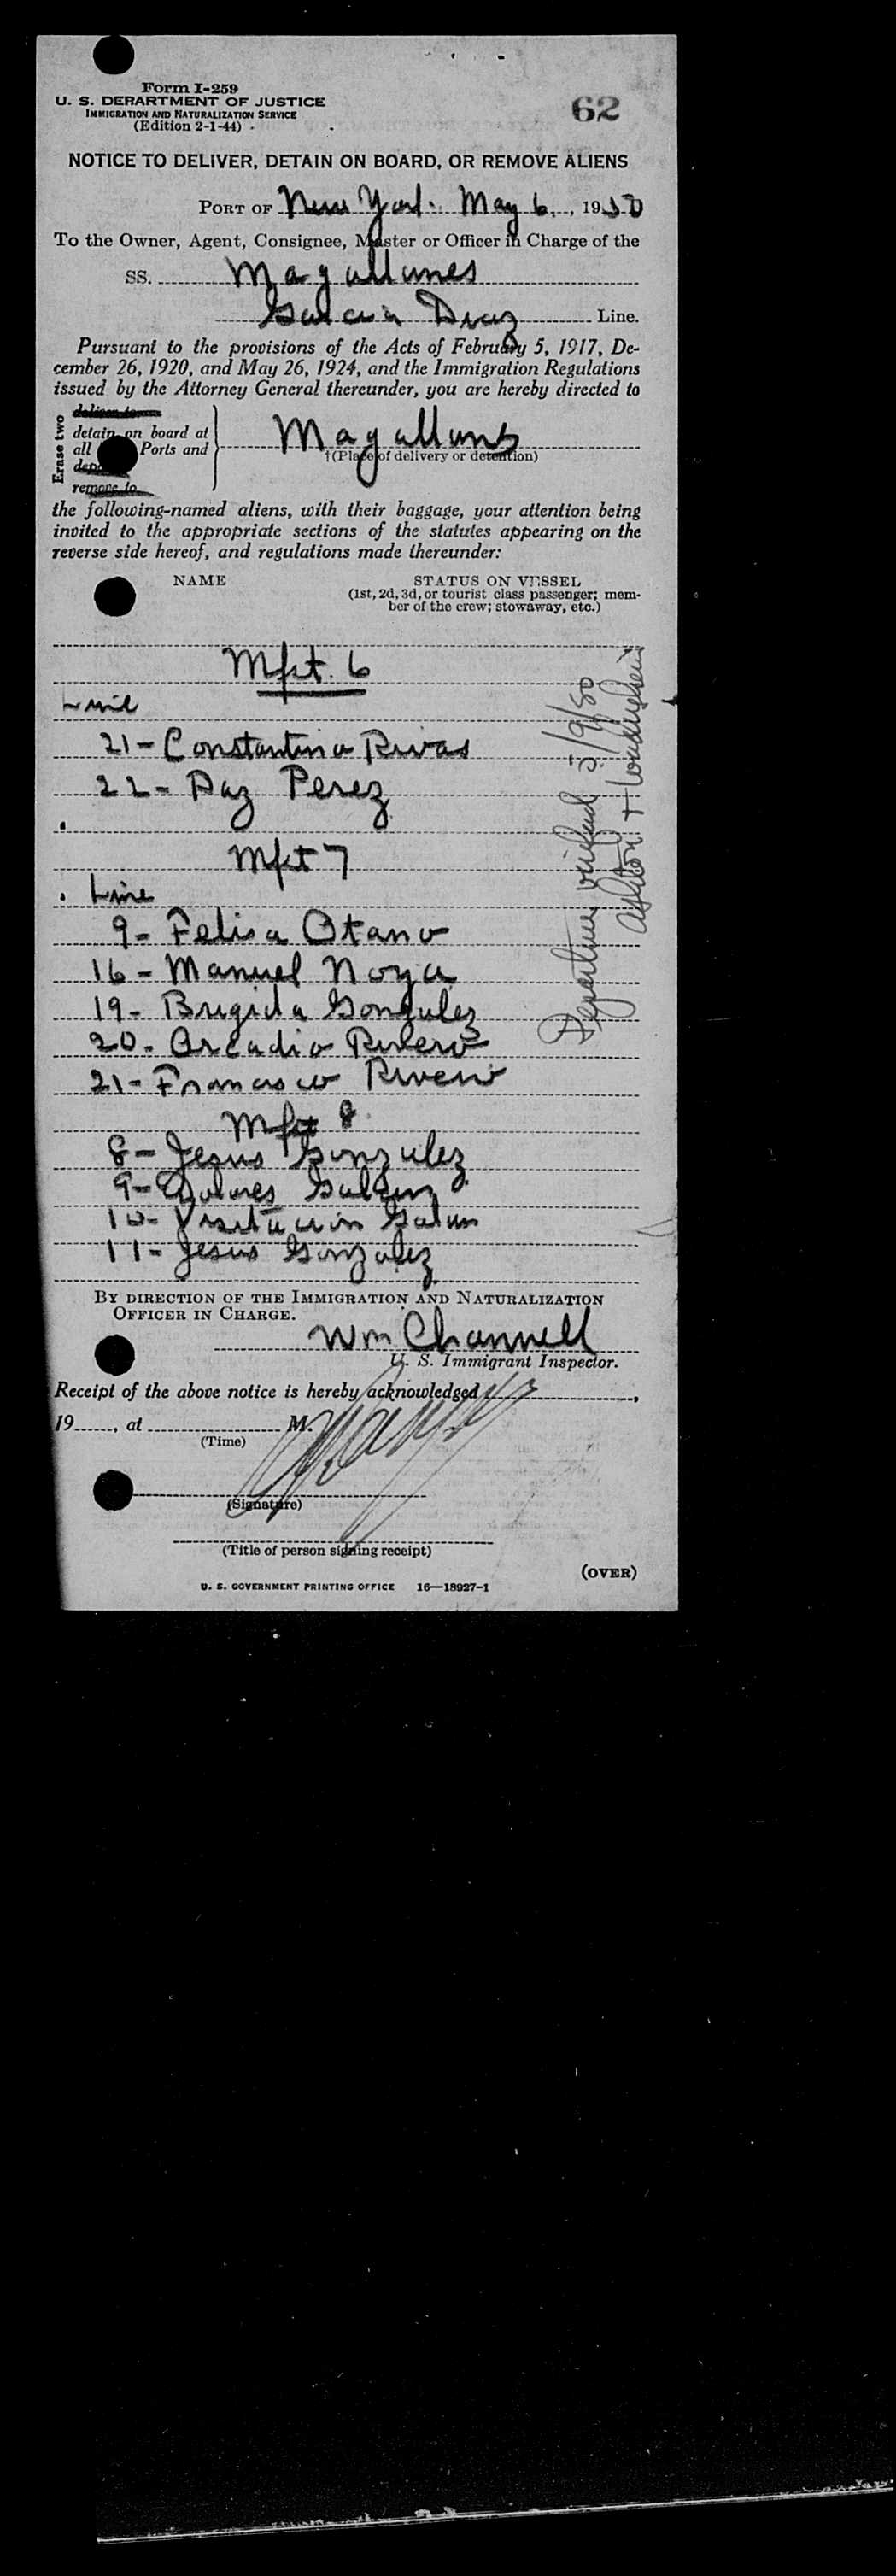 Form I-259
U. S. DEPARTMENT OF JUSTICE
IMMIGRATION AND NATURALIZATION SERVICE
(Edition 2-1-44)
62
NOTICE TO DELIVER, DETAIN ON BOARD, OR REMOVE ALIENS
PORT OF New York. May 6, 1950
To the Owner, Agent, Consignee, Master or Officer in Charge of the
SS. Magallanes
Garcia Diaz Line.
Pursuant to the provisions of the Acts of February 5, 1917, De-
cember 26, 1920, and May 26, 1924, and the Immigration Regulations
issued by the Attorney General thereunder, you are hereby directed to
Erase two
deliver to
detain on board at
all Ports and
remove to
Magallanes
†(Place of delivery or detention)
the following-named aliens, with their baggage, your attention being
invited to the appropriate sections of the statutes appearing on the
reverse side hereof, and regulations made thereunder:
NAME
STATUS ON VESSEL
(1st, 2d, 3d, or tourist class passenger; mem-
ber of the crew; stowaway, etc.)
Mfst. 6
Line
21- Constantina Rivas
22- Paz Perez
Mfst 7
Line
9- Felisa Otano
16- Manuel Noya
19- Brigida Gonzalez
20- Arcadio Rivero
21- Francisco Rivero
Mfst 8
8- Jesus Gonzalez
9- Dolores
10- Visitacion
11- Jesus Gonzalez
Departure verified 5/9/50
BY DIRECTION OF THE IMMIGRATION AND NATURALIZATION
OFFICER IN CHARGE.
Wm Channell
U. S. Immigrant Inspector.
Receipt of the above notice is hereby acknowledged
19......, at M.
(Time)
(Signature)
(Title of person signing receipt)
(OVER)
U. S. GOVERNMENT PRINTING OFFICE 16—18927-1